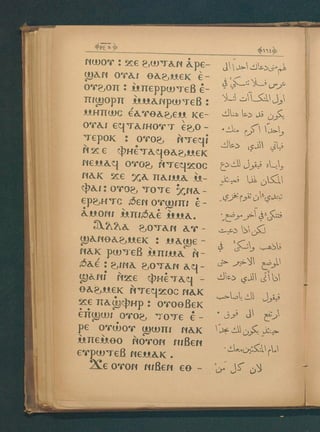 ⲛⲱⲟⲩ : ϫⲉ ϩⲱⲧⲁⲛ ⲁ̀ⲣⲉ-
ϣⲁⲛ ⲟⲩⲁⲓ ⲑⲁϩⲙⲉⲕ ⲉ̀-
ⲟⲩϩⲟⲡ : ⲙ̀ⲡⲉⲣⲣⲱⲧⲉⲃ ⲉ̀-
ⲡⲓϣⲟⲣⲡ ⲙ̀ⲙⲁⲛⲣⲱⲧⲉⲃ :
ⲙⲏⲡⲱⲥ ⲉ̀ⲁⲩⲑⲁϩⲉⲙ ⲕⲉ-
ⲟⲩⲁⲓ ⲉϥⲧⲁⲓⲏⲟⲩⲧ ⲉϩⲟ-
ⲧⲉⲣⲟⲕ : ⲟⲩⲟϩ ⲛ̀ⲧⲉϥⲓ̀
ⲛ̀ϫⲉ ⲫⲏⲉ̀ⲧⲁϥⲑⲁϩⲙⲉⲕ
ⲛⲉⲙⲁϥ ⲟⲩⲟϩ ⲛ̀ⲧⲉϥϫⲟⲥ
ⲛⲁⲕ ϫⲉ ⲭⲁ ⲡⲁⲓⲙⲁ ⲙ̀-
ⲫⲁⲓ : ⲟⲩⲟϩ ⲧⲟⲧⲉ ⲭ̀ⲛⲁ-
ⲉⲣϩⲏⲧⲥ ϧⲉⲛ ⲟⲩϣⲓⲡⲓ ⲉ̀-
ⲁ̀ⲙⲟⲛⲓ ⲙ̀ⲡⲓϧⲁⲉ̀ ⲙ̀ⲙⲁ.
Ⲁⲗⲗⲁ ϩⲟⲧⲁⲛ ⲁⲩ-
ϣⲁⲛⲑⲁϩⲙⲉⲕ : ⲙⲁϣⲉ-
ⲛⲁⲕ ⲣⲱⲧⲉⲃ ⲙ̀ⲡⲓⲙⲁ ⲛ̀-
ϧⲁⲉ̀ : ϩⲓⲛⲁ ϩⲟⲧⲁⲛ ⲁϥ-
ϣⲁⲛⲓ̀ ⲛ̀ϫⲉ ⲫⲏⲉ̀ⲧⲁϥ-
ⲑⲁϩⲙⲉⲕ ⲛ̀ⲧⲉϥϫⲟⲥ ⲛⲁⲕ
ϫⲉ ⲡⲁϣ̀ⲫⲏⲣ : ⲟⲩⲟⲑⲃⲉⲕ
ⲉ̀ⲡϣⲱⲓ ⲟⲩⲟϩ ⲧⲟⲧⲉ ⲉ̀-
ⲣⲉ ⲟⲩⲱ̀ⲟⲩ ϣⲱⲡⲓ ⲛⲁⲕ
ⲙ̀ⲡⲉⲙ̀ⲑⲟ ⲛ̀ⲟⲩⲟⲛ ⲛⲓⲃⲉⲛ
ⲉⲩⲣⲱⲧⲉⲃ ⲛⲉⲙⲁⲕ .
Ϫⲉ ⲟⲩⲟⲛ ⲛⲓⲃⲉⲛ ⲉⲑ-
لهم متى دعاك احد الى
عرس فلا تتكئ في
اول المتكآت لئلا
يكون قد دعا هناك
واحدًا اكرم منك.
فياتي الذي دعاك
واياه فيقول لك دع
المكان لهذا فحينئذ
تبتدي ان تقوم بخزي
فتتكئ في آخر موضع.
لكن اذا دعيت
فاذهب واتكئ في
الموضع الاخير حتى
اذا اتى الذي دعاك
فيقول لك يا صاحب
ارتفع الى فوق.
حينئذ يكون لك مجدًا
امام المتكئين معك.
لان كل من